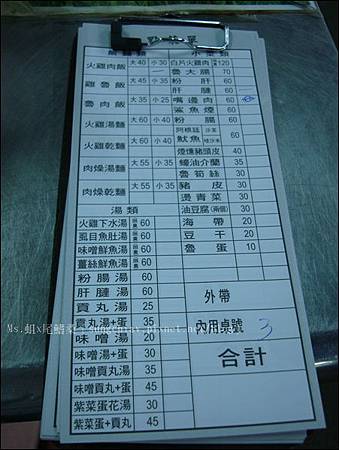 點菜單
飯麵類
火雞肉飯 大40 小30
雞魯飯 大45 小35
魯肉飯 大35 小25
火雞湯麵 大60 小40
火雞乾麵 大60 小40
肉燥湯麵 大55 小35
肉燥乾麵 大55 小35
湯類
火雞下水湯 60
虱目魚肚湯 60
味噌鮮魚湯 60
薑絲鮮魚湯 60
粉腸湯 60
肝腱湯 60
貢丸湯 25
貢丸湯+蛋 35
味噌湯 20
味噌湯+蛋 30
味噌貢丸湯 35
味噌貢丸+蛋 45
紫菜蛋花湯 30
紫菜+貢丸 45
小菜類
白片火雞肉 120
魯大腸 70
粉肝 60
肝腱 60
嘴邊肉 60
鯊魚煙 60
粉腸 60
阿根廷魷魚 沙茶 哇沙米 60
煙燻豬頭皮 40
蠔油介蘭 35
魯筍絲 30
豬皮 30
燙青菜 30
油豆腐(兩個) 30
海帶 20
豆干 20
魯蛋 10
外帶
內用桌號 3
合計